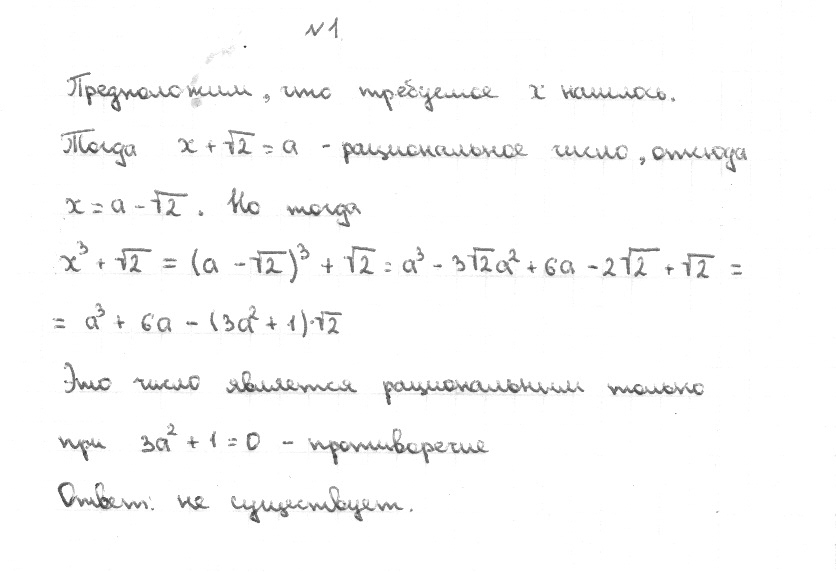 №1
Предположим, что требуемое x нашлось.
Тогда x + √2 = a - рациональное число, откуда
x = a - √2. Но тогда
x³ + √2 = (a - √2)³ + √2 = a³ - 3√2a² + 6a - 2√2 + √2 =
= a³ + 6a - (3a² + 1)·√2
Это число является рациональным только
при 3a² + 1 = 0 - противоречие
Ответ: не существует.